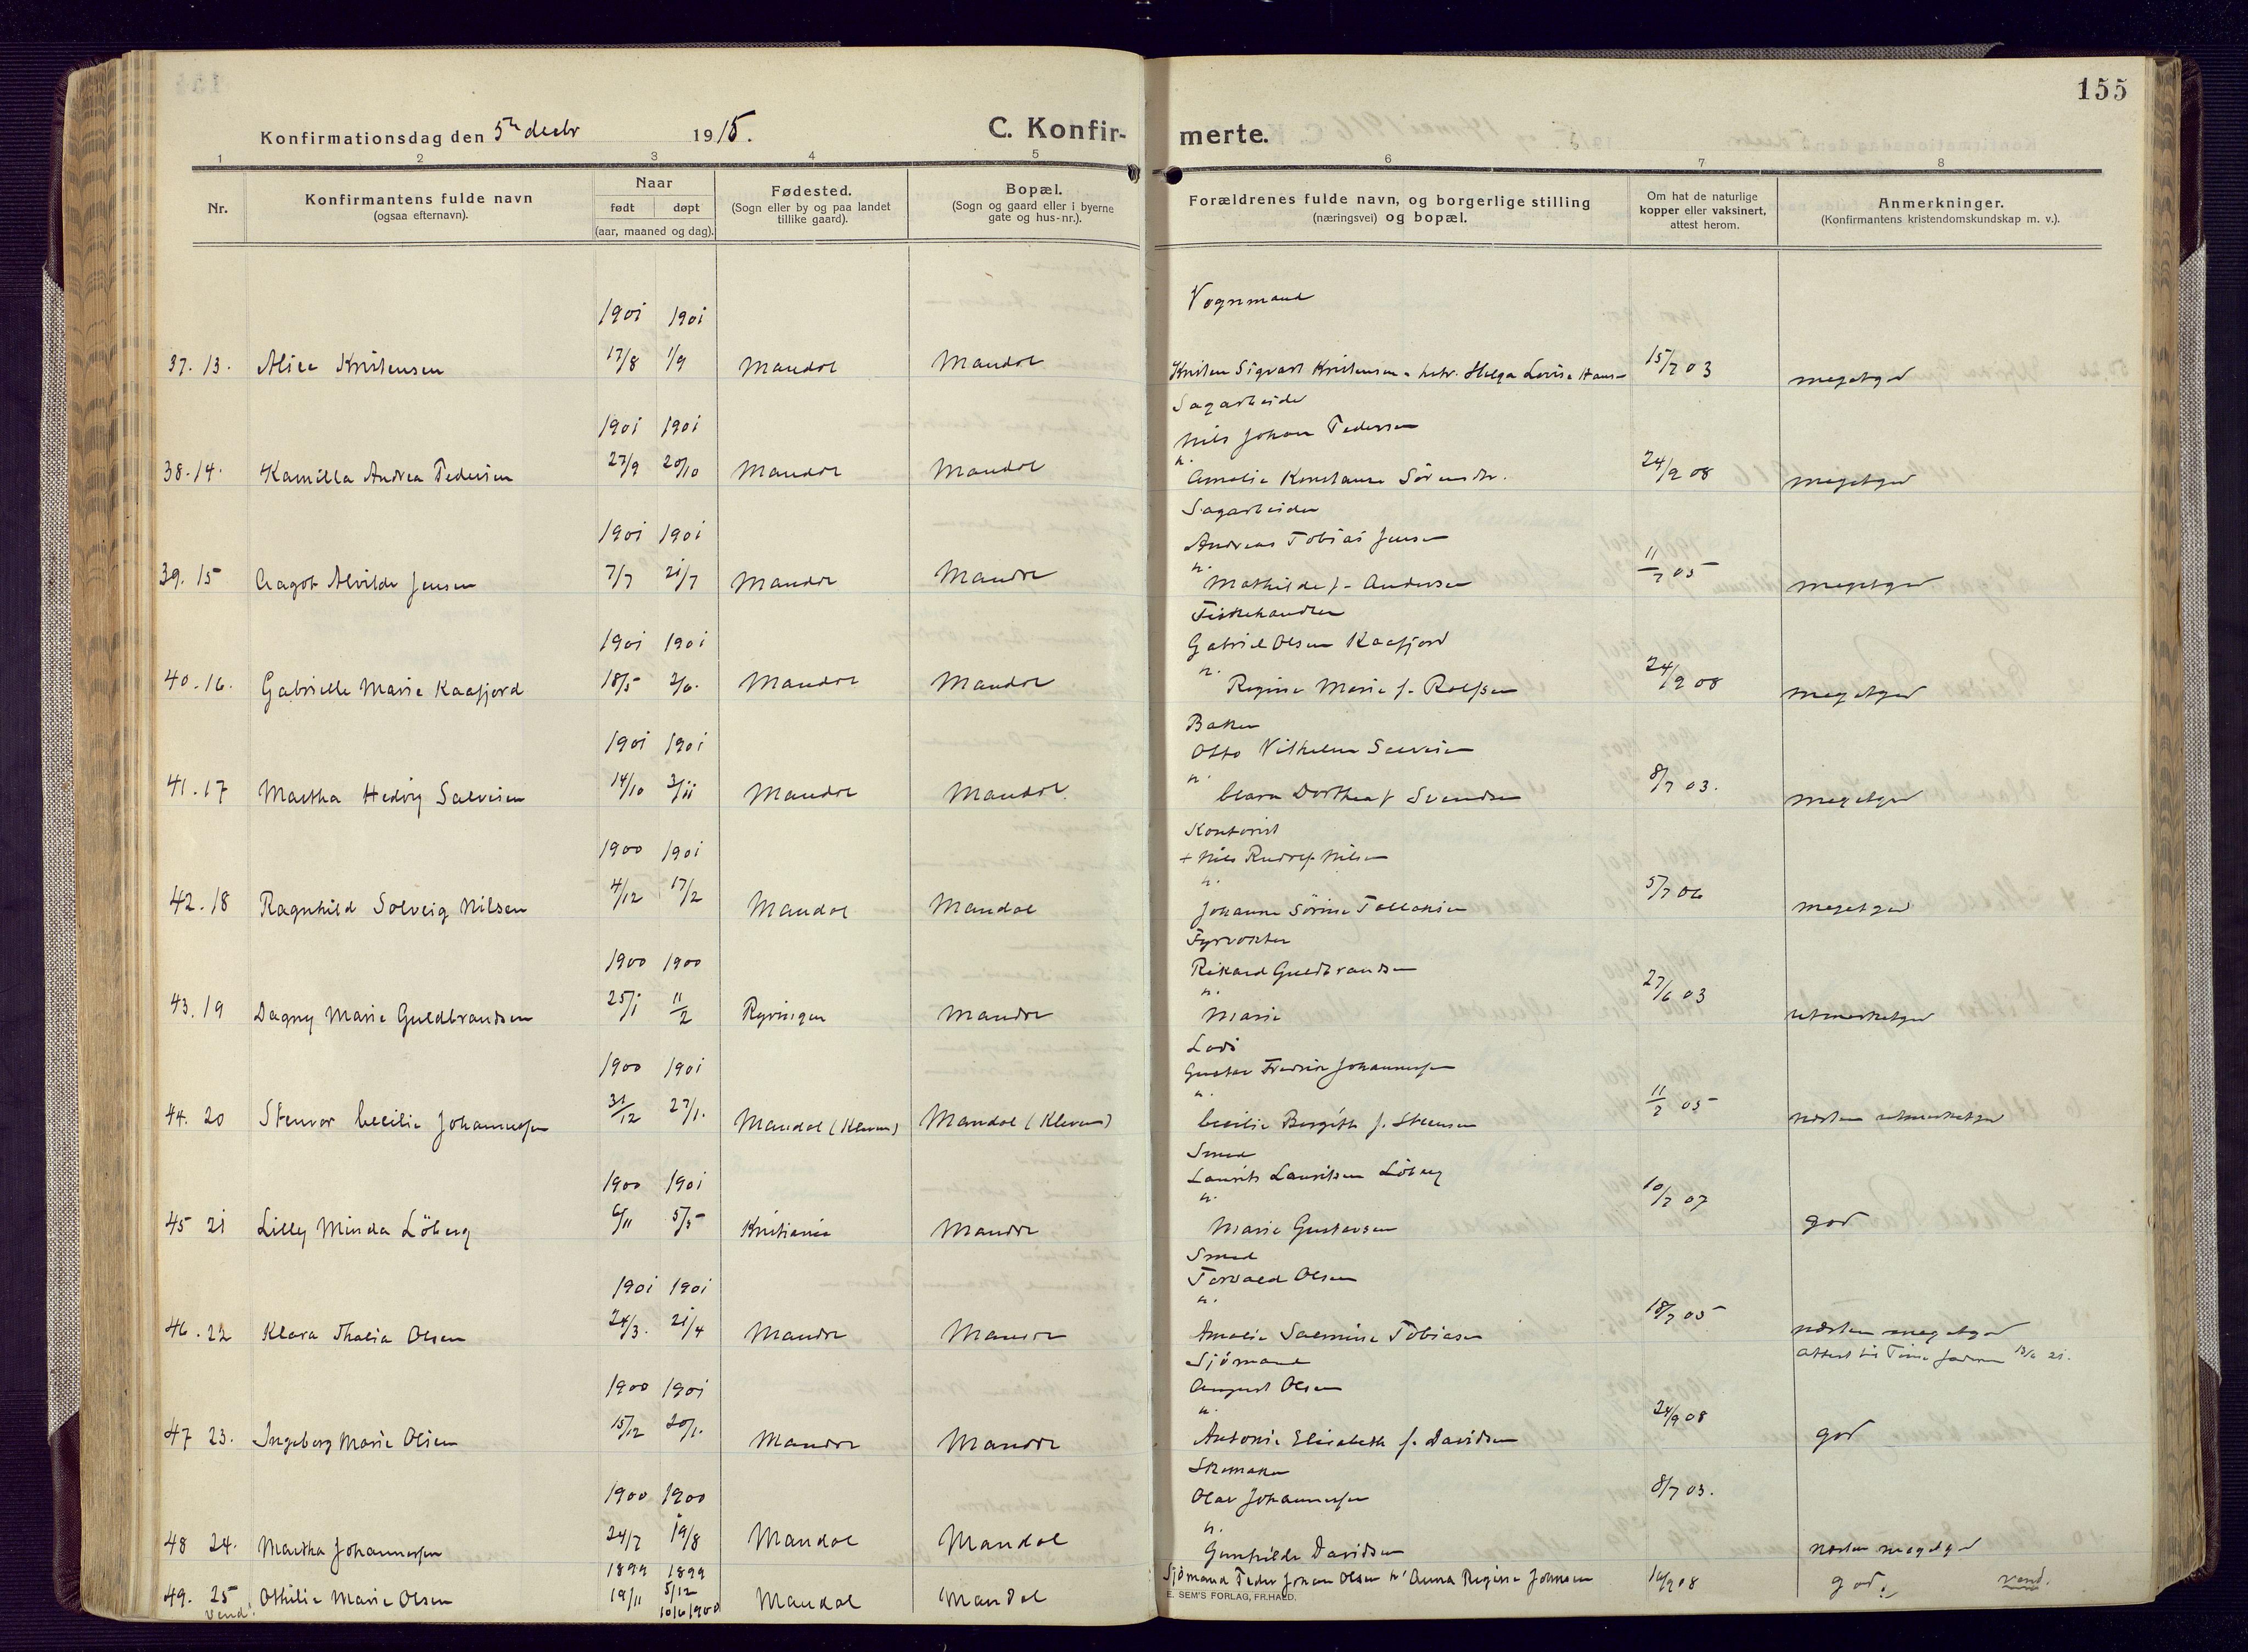 155
Konfirmationsdag den 5te decbr 1915.
C. Konfirmerte.
1 2 3 4 5 6 7 8
Nr.
Konfirmantens fulde navn
(ogsaa efternavn).
Naar
født døpt
(aar, maaned og dag).
Fødested.
(Sogn eller by og paa landet
tillike gaard).
Bopæl.
(Sogn og gaard eller i byerne
gate og hus-nr.).
Forældrenes fulde navn, og borgerlige stilling
(næringsvei) og bopæl.
Om hat de naturlige
kopper eller vaksinert,
attest herom.
Anmerkninger.
(Konfirmantens kristendomskundskap m. v.).
Vognmand
1901 1901
37. 13. Alice Kristensen 17/8 1/9 Mandal Mandal Kristen Sigvart Kristensen Helga Lovise Hans 15/7 03 megetgod
Sagarbeider
1901 1901 Nils Johan Pedersen
38. 14. Kamilla Andrea Pedersen 27/9 20/10 Mandal Mandal Amalie Konstanse Sörensdtr. 24/9 08 megetgod
Sagarbeider
1901 1901 Andreas Tobias Jensen
39. 15 Aagot Alvilde Jensen 7/7 21/7 Mandal Mandal Mathilde f. Andersen 11/7 05 megetgod
Fiskehandler
1901 1901 Gabriel Olsen Kaafjord
40. 16. Gabrielle Marie Kaafjord 18/5 2/6. Mandal Mandal Regine Marie f. Rolfsen 24/9 08 megetgod
Baker
1901 1901 Otto Vilhelm Salvesen
41. 17 Martha Hedvig Salvesen 14/10 3/11 Mandal Mandal Clara Dorthea f Svendsen 8/7 03. megetgod
Kontorist
1900 1901 + Nils Rudolf Nilsen
42. 18 Ragnhild Solveig Nilsen 4/12 17/2 Mandal Mandal Johanne Sörine Tallaksen 5/7 06 megetgod
Fyrvokter
1900 1900 Rikard Guldbrandsen
43. 19 Dagny Marie Guldbrandsen 25/1 11/2 Ryvingen Mandal Marie 27/6 03 utmerketgod
Lods
1900 1901 Gustav Fredrik Johannessen
44. 20 Stenvor Cecilie Johannessen 31/12 27/1. Mandal (Kleven) Mandal (Kleven) Cecilie Bergith f. Steensen 11/7 05 næsten utmerketgod
Smed
1900 1901 Laurits Lauritsen Löberg
45 21 Lilly Minda Löberg 6/11 5/5 Kristiania Mandal Marie Gustavsen 10/7 07 god
Smed
1901 1901 Torvald Olsen
46. 22 Klara Thalia Olsen 24/3. 21/4 Mandal Mandal Amalie Salmine Tobiasen 18/7 05 næsten megetgod
Sjömand
1900 1901 August Olsen
47 23. Ingeborg Marie Olsen 15/12 20/1. Mandal Mandal Antonie Elisabeth f. Davidsen 24/9 08 god
Skomaker
1900 1900 Olav Johannessen
48 24. Martha Johannessen 24/7 19/8 Mandal Mandal Gunhilde Davidsen 8/7 03. næsten megetgod
1899 1899
49. 25 Othilie Marie Olsen 19/11 5/12 Mandal Mandal Sjömand Peder Johan Olsen h. Anna Regine Johnsen 16/9 08 god. vend.
vend! 10/6 1900
E. SEM'S FORLAG, FR.HALD.